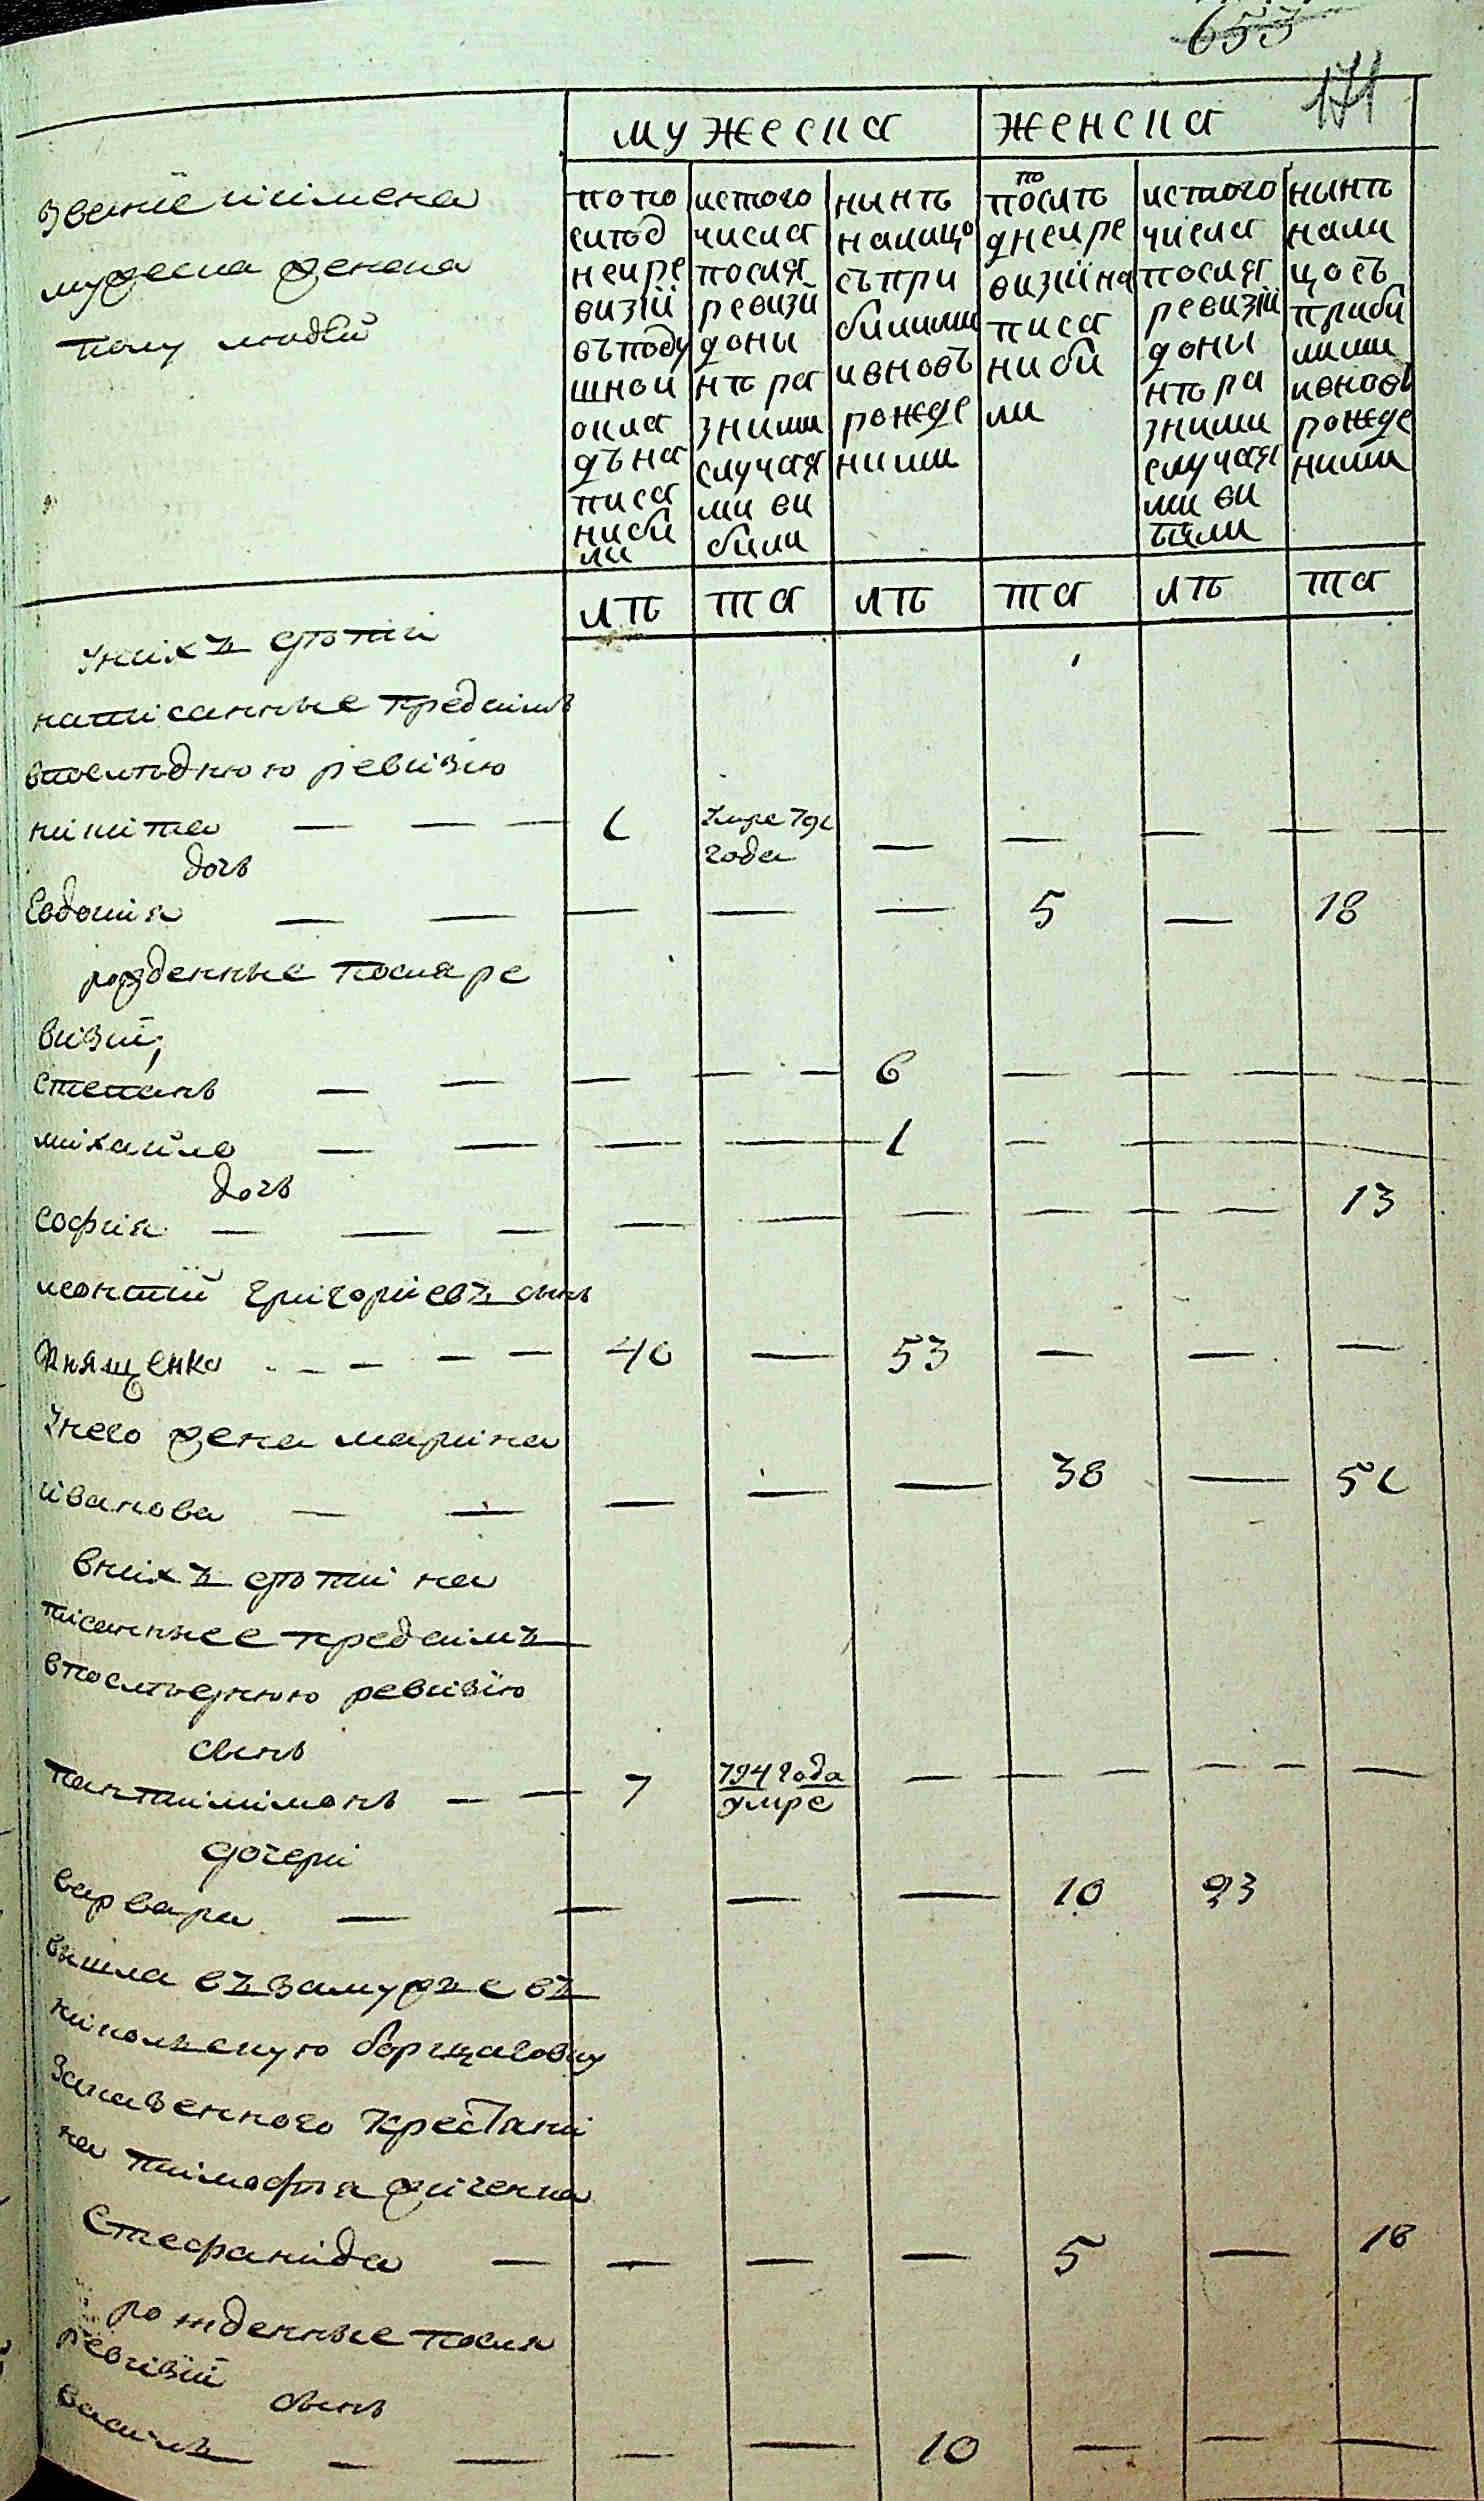 653
171
мужеска
женска
званіе и імена
мужеска женска
полу людей
по по
слѣд
ней ре
визіи
въ поду
шной
окла
дъ на
писа
ни би
ли
ис того
числа
после
ревизіи
до ны
нѣ ра
зними
случая
ми ви
били
нынѣ
на лицо
съ при
билими
и вновь
рожде
ними
по
послѣ
дней ре
визіи на
писа
ни би
ли
ис того
числа
посля
ревизіи
до ны
нѣ ра
зними
случая
ми ви
были
нынѣ
на ли
цо съ
приби
лими
и вновь
рожде
ними
лѣ
та
лѣ
та
лѣ
та
у них дѣти
написанные пред симъ
в последнюю ревизію
никита — — — 1 умре 791 года — — — — —
дочь
Евдокія — — — — — 5 — 18
рожденные после ре
визіи,
степанъ — — — — — 6 — — — —
михайло — — — — 1 — — —
дочь
софия — — — — — — — — — 13
леонтий григориевъ сынъ
кнященко - - - - - 40 — 53 — — —
у него жена марина
іванова — — — — — 38 — 51
в них дѣти на
писанные пред симъ
в последнюю ревизїю
сынъ
пантилимонъ — — 7 794 года умре — — — — — —
дочери
варвара — — — — 10 93
вышла въ замужье въ
никольскую борщаговку
за казенного крестяни
на тимофѣя
Стефанида — — — — 5 — 18
рожденные посля
ревизїи сынъ
василь — — — — 10 — — —